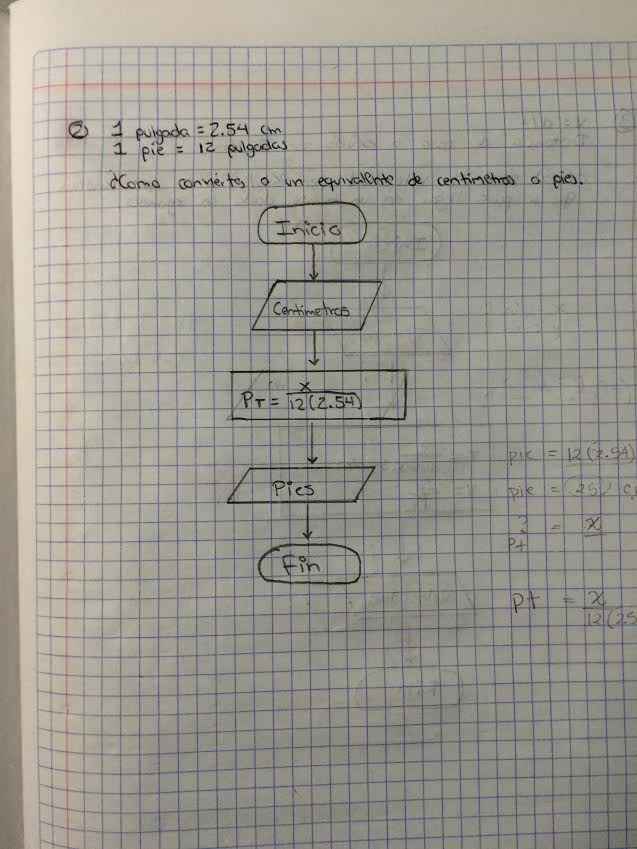 ② 1 pulgada = 2.54 cm
1 pie = 12 pulgadas
¿Como convierto a un equivalente de centimetros a pies.
Inicio
Centimetros
PT = x / 12(2.54)
Pies
Fin
pie = 12(2.54)
pie =
? = x
Pt
pt = x / 12(